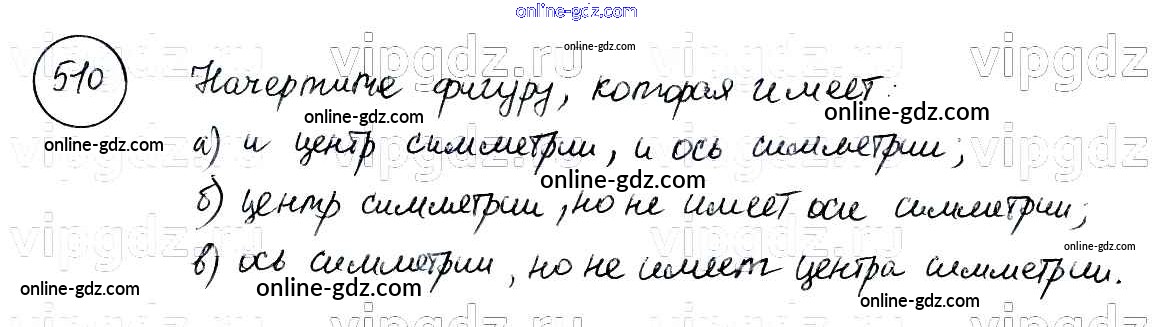 online-gdz.com
510 Начертите фигуру, которая имеет:
vipgdz.ru vipgdz.ru vipgdz.ru
online-gdz.com
online-gdz.com online-gdz.com
а) и центр симметрии, и ось симметрии;
online-gdz.com
online-gdz.com
б) центр симметрии, но не имеет оси симметрии;
vipgdz.ru vipgdz.ru vipgdz.ru
online-gdz.com
в) ось симметрии, но не имеет центра симметрии.
online-gdz.com online-gdz.com online-gdz.com online-gdz.com